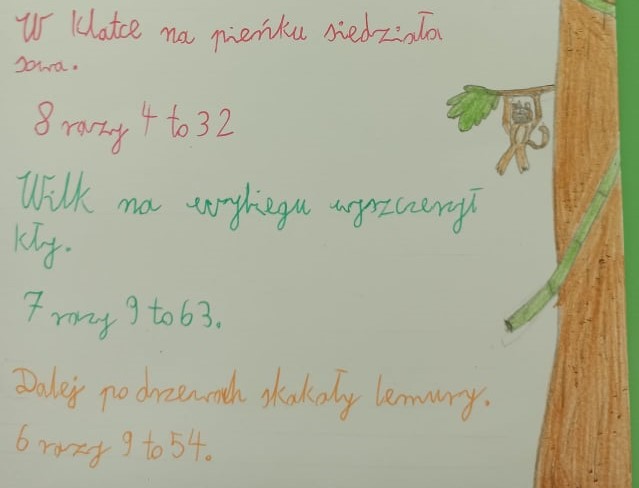 W klatce na pieńku siedziała
sowa.
8 razy 4 to 32
Wilk na wybiegu wyszczerzył
kły.
7 razy 9 to 63.
Dalej po drzewach skakały lemury.
6 razy 9 to 54.